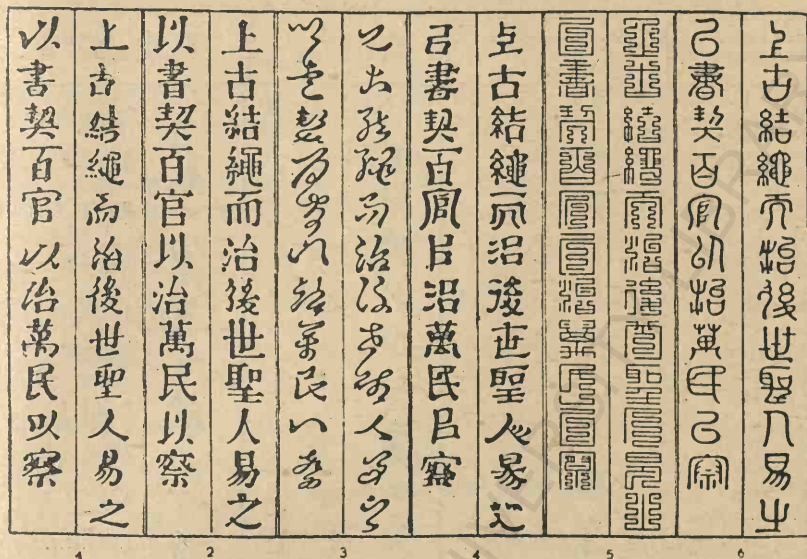 上古結繩而治後世聖人易之
以書契百官以治萬民以察
上古結繩而治後世聖人易之
以書契百官以治萬民以察
上古結繩而治後世聖人易之
以書契百官以治萬民以察
上古結繩而治後世聖人易之
以書契百官以治萬民以察
上古結繩而治後世聖人易之
以書契百官以治萬民以察
上古結繩而治後世聖人易之
以書契百官以治萬民以察
1 2 3 4 5 6